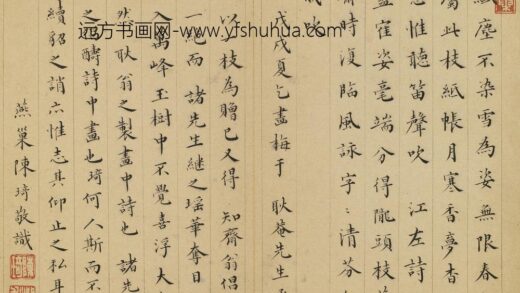 風塵不染雪為姿無限春
屬此枝紙帳月寒香夢杳
惟聽笛聲吹 江左詩
窪姿毫端分得隴頭枝
時復臨風詠字〻清芬
戊戌夏乞畫梅于 耿菴先生
以一枝為贈已又得 知齋翁倡
一絕而 諸先生繼之瑶華奪日
入萬峰玉樹中不覺喜浮大
然耿翁之製畫中詩也 諸先
之酬詩中畫也琦何人斯而不
續貂之誚亦惟志其仰止之私耳
燕巢陳琦敬識
远方书画网-www.yfshuhua.com